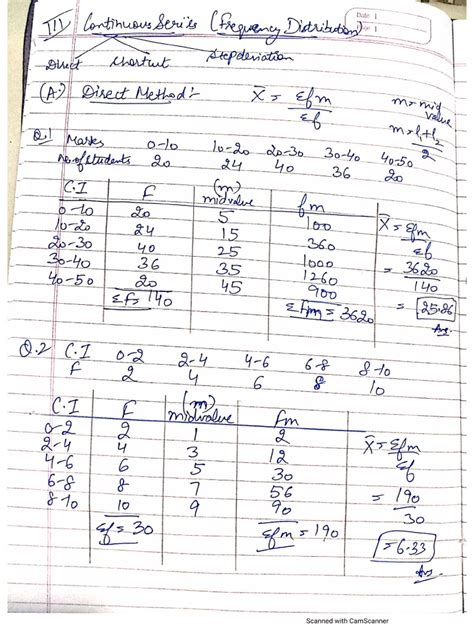 III) Continuous Series (Frequency Distribution)
Date
Direct Shortcut Stepdeviation
(A.) Direct Method:- X̄ = Σfm / Σf m = mid value
m = l₁+l₂ / 2
Q.1 Marks 0-10 10-20 20-30 30-40 40-50
No. of students 20 24 40 36 20
C.I F (m) midvalue fm
0-10 20 5 100 X̄ = Σfm / Σf
10-20 24 15 360
20-30 40 25 1000 = 3620 / 140
30-40 36 35 1260
40-50 20 45 900 = 25.86 Ans.
Σf = 140 Σfm = 3620
Q.2 C.I 0-2 2-4 4-6 6-8 8-10
F 2 4 6 8 10
C.I F (m) midvalue Fm
0-2 2 1 2 X̄ = Σfm / Σf
2-4 4 3 12
4-6 6 5 30
6-8 8 7 56 = 190 / 30
8-10 10 9 90
Σf = 30 Σfm = 190 = 6.33
Ans.
Scanned with CamScanner